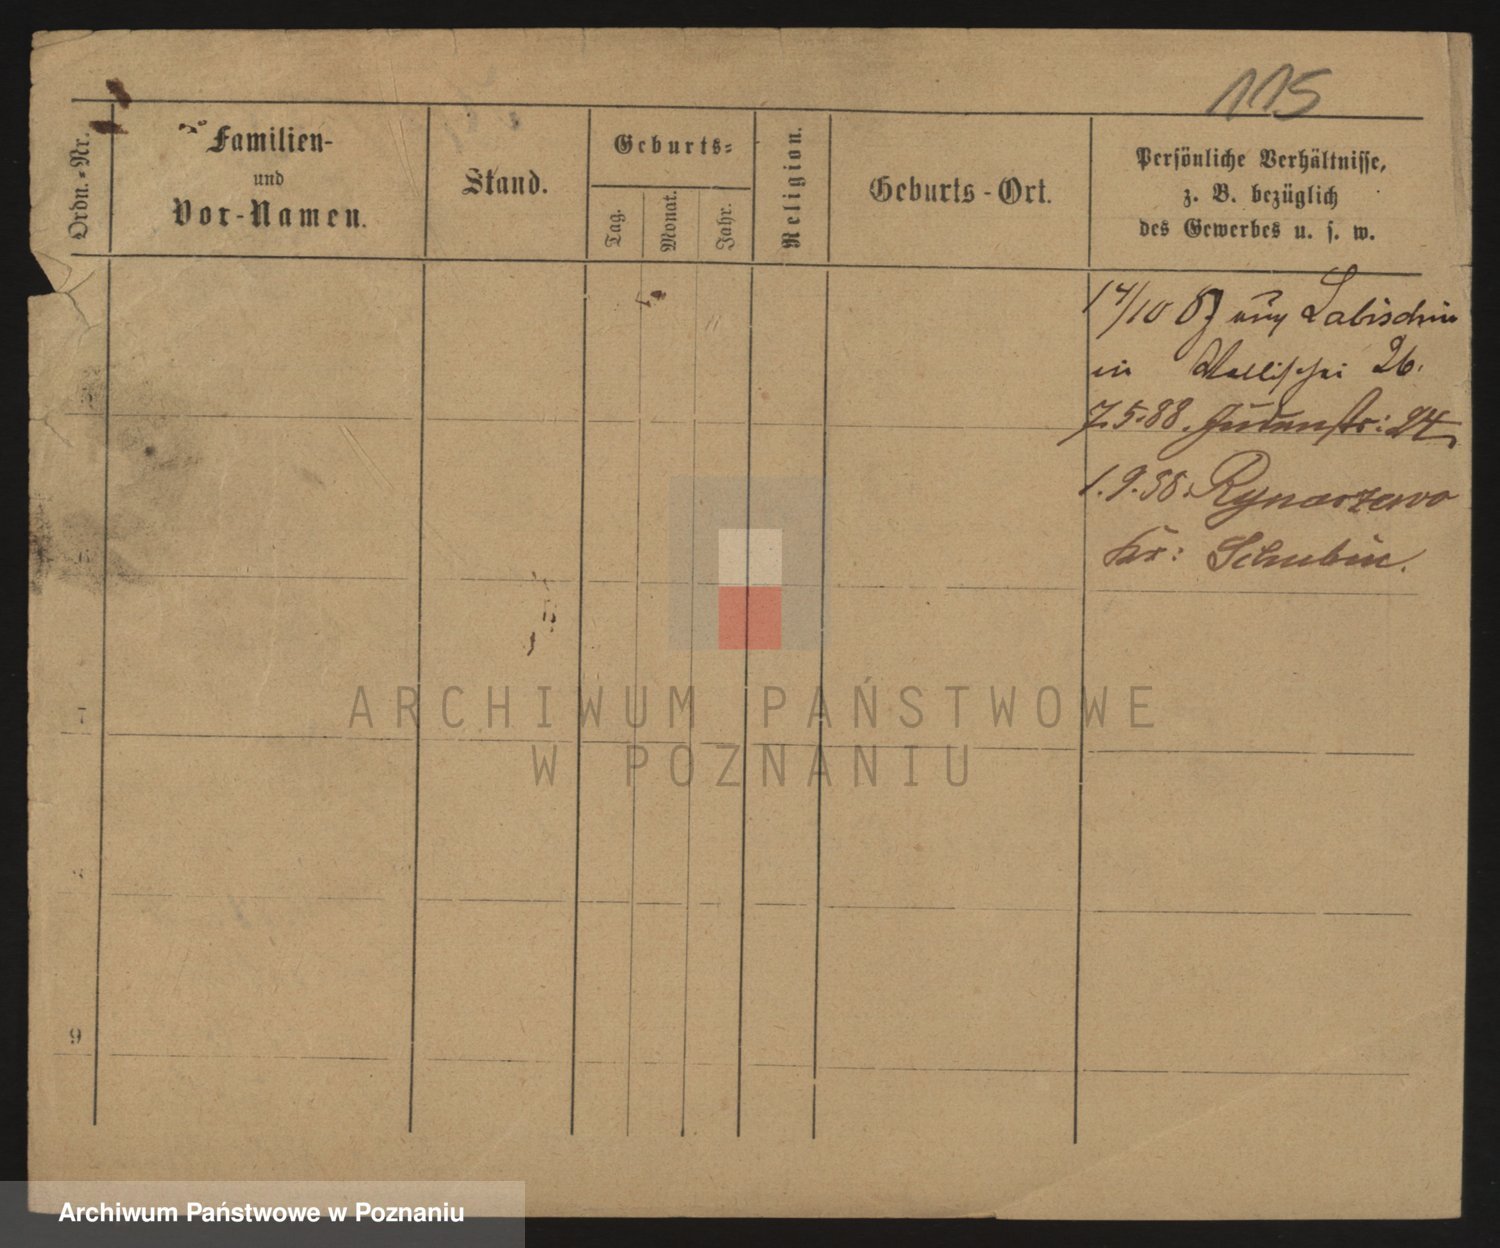 115
Ordn.-Nr.
Familien-
und
Vor-Namen.
Stand.
Geburts-
Tag.
Monat.
Jahr.
Religion.
Geburts-Ort.
Persönliche Verhältnisse,
z. B. bezüglich
des Gewerbes u. s. w.
17/10 87 Labischin
in Wallischei 26.
7.5.88. Judenstr: 24
1.9.88. Rynarzewo
Kr: Schubin.
6
7
8
9
ARCHIWUM PAŃSTWOWE
W POZNANIU
Archiwum Państwowe w Poznaniu